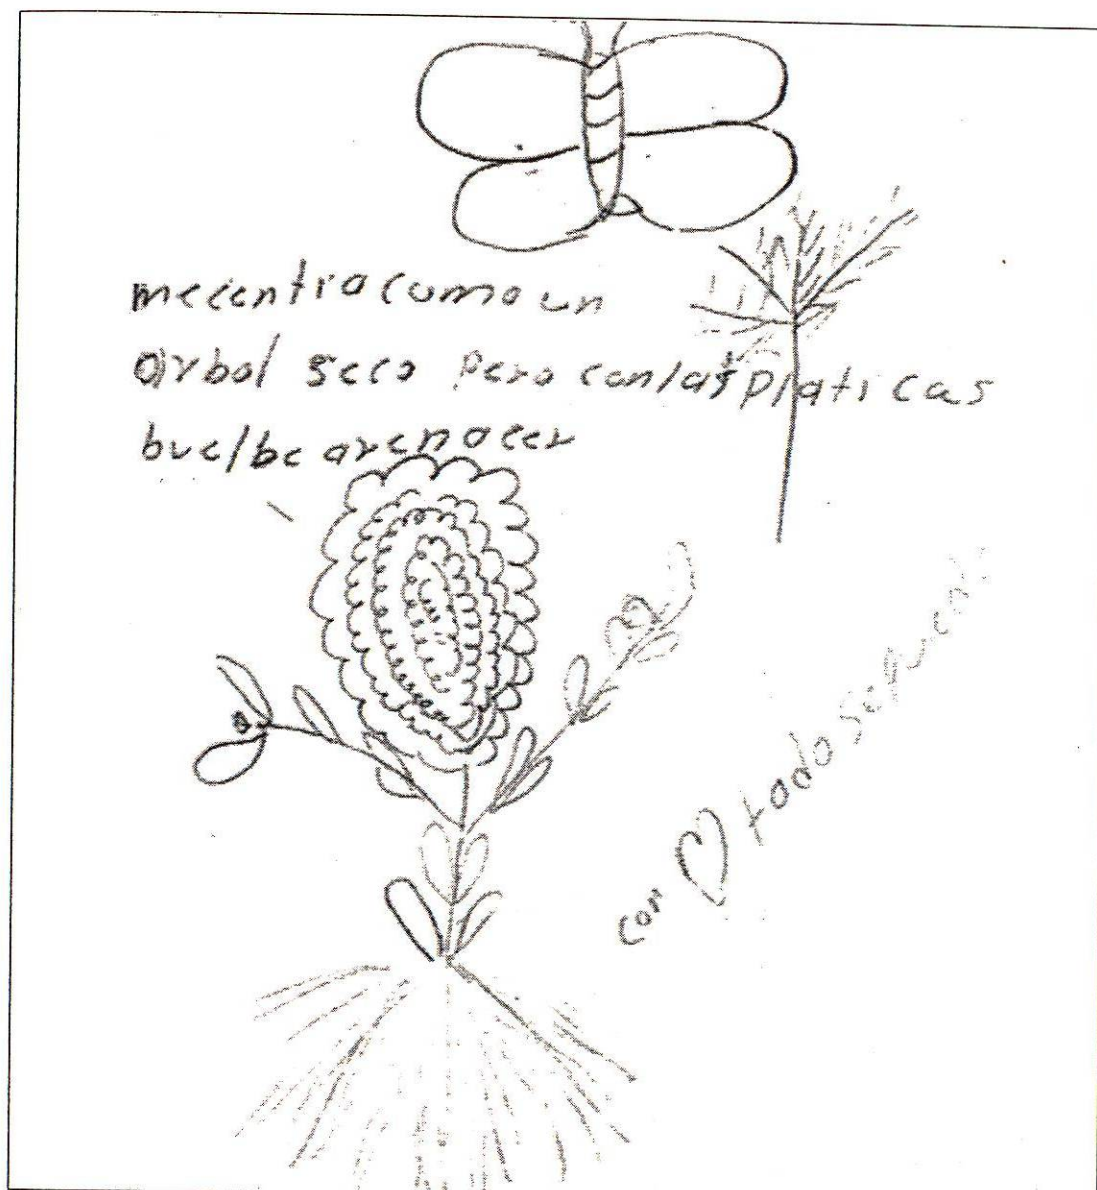 mecentia como un
arbol seco pero con las platicas
buelbe arenacer
con todo se puede